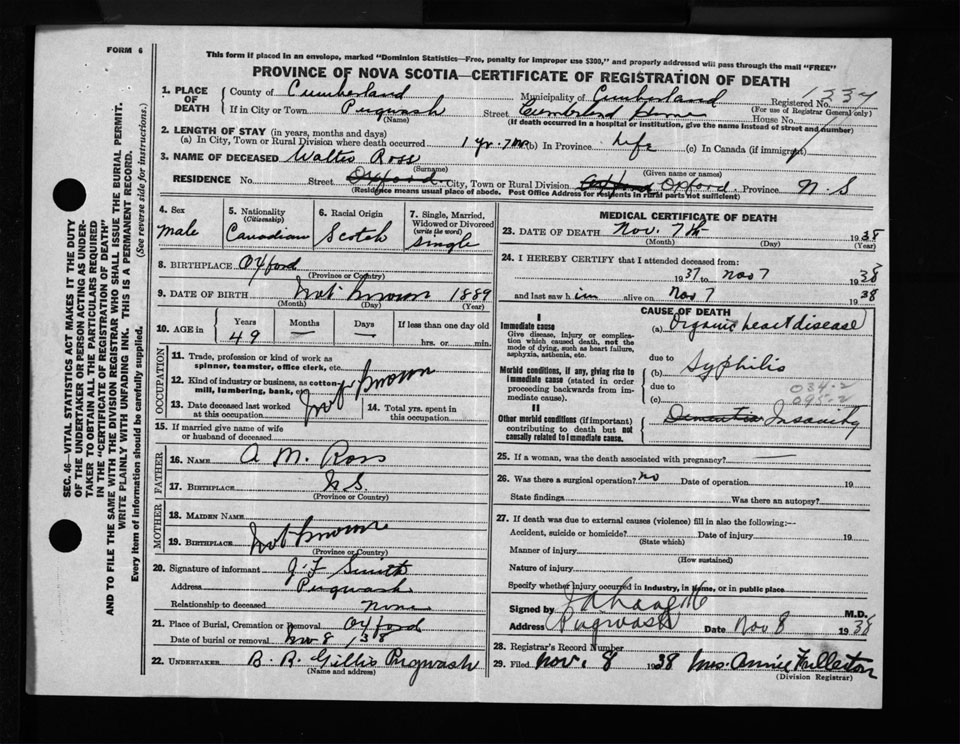 FORM 6
This form if placed in an envelope, marked "Dominion Statistics—Free, penalty for improper use $300," and properly addressed will pass through the mail "FREE"
PROVINCE OF NOVA SCOTIA—CERTIFICATE OF REGISTRATION OF DEATH
1. PLACE OF DEATH County of Cumberland Municipality of Cumberland Registered No. 1334
(For use of Registrar General only)
If in City or Town Pugwash Street Home House No.
(Name) (If death occurred in a hospital or institution, give the name instead of street and number)
2. LENGTH OF STAY (in years, months and days)
(a) In City, Town or Rural Division where death occurred 1 yr. 7 mo (b) In Province Life (c) In Canada (if immigrant)
3. NAME OF DECEASED Walter Ross
(Surname) (Given name or names)
RESIDENCE No. Street Oxford City, Town or Rural Division Oxford Oxford. Province N. S
(Residence means usual place of abode. Post Office Address for residents in rural parts not sufficient)
4. Sex male
5. Nationality (Citizenship) Canadian
6. Racial Origin Scotch
7. Single, Married, Widowed or Divorced (write the word) single
8. BIRTHPLACE Oxford
(Province or Country)
9. DATE OF BIRTH not known 1889
(Month) (Day) (Year)
10. AGE in Years 49 Months — Days — If less than one day old hrs. or min.
OCCUPATION
11. Trade, profession or kind of work as spinner, teamster, office clerk, etc.
12. Kind of industry or business, as cotton mill, lumbering, bank, etc. not known
13. Date deceased last worked at this occupation
14. Total yrs. spent in this occupation
15. If married give name of wife or husband of deceased
FATHER
16. NAME A. M. Ross
17. BIRTHPLACE N. S.
(Province or Country)
MOTHER
18. MAIDEN NAME
19. BIRTHPLACE not known
(Province or Country)
20. Signature of informant J. F. Smith
Address Pugwash
Relationship to deceased none
21. Place of Burial, Cremation or Removal Oxford
Date of burial or removal Nov 8 /38
22. UNDERTAKER B. R. Gillis Pugwash
(Name and address)
MEDICAL CERTIFICATE OF DEATH
23. DATE OF DEATH Nov. 7th 1938
(Month) (Day) (Year)
24. I HEREBY CERTIFY that I attended deceased from:
1937 to Nov 7 1938
and last saw him alive on Nov 7 1938
CAUSE OF DEATH
I
Immediate cause
Give disease, injury or complication which caused death, not the mode of dying, such as heart failure, asphyxia, asthenia, etc.
(a) Organic heart disease
due to
Morbid conditions, if any, giving rise to immediate cause (stated in order proceeding backwards from immediate cause).
(b) Syphilis
due to
(c)
034-2
095-2
II
Other morbid conditions (if important) contributing to death but not causally related to immediate cause.
Dementia Insanity
25. If a woman, was the death associated with pregnancy? —
26. Was there a surgical operation? no Date of operation 19
State findings Was there an autopsy?
27. If death was due to external causes (violence) fill in also the following:—
Accident, suicide or homicide? Date of injury 19
(State which)
Manner of injury
(How sustained)
Nature of injury
Specify whether injury occurred in Industry, in Home, or in public place
Signed by M.D.
Address Pugwash Date Nov 8 1938
28. Registrar's Record Number
29. Filed Nov. 8 1938 Mrs. Annie Fullerton
(Division Registrar)
SEC. 46—VITAL STATISTICS ACT MAKES IT THE DUTY
OF THE UNDERTAKER OR PERSON ACTING AS UNDER-
TAKER TO OBTAIN ALL THE PARTICULARS REQUIRED
IN THE "CERTIFICATE OF REGISTRATION OF DEATH"
AND TO FILE THE SAME WITH THE DIVISION REGISTRAR WHO SHALL ISSUE THE BURIAL PERMIT.
WRITE PLAINLY WITH UNFADING INK. THIS IS A PERMANENT RECORD.
Every item of information should be carefully supplied. (See reverse side for instructions.)